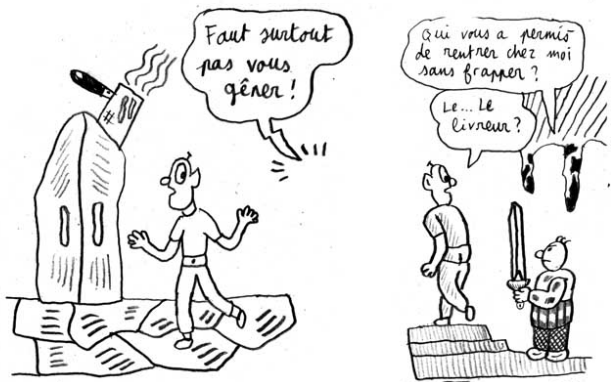 Faut surtout
pas vous
gêner !
# 80
Qui vous a permis
de rentrer chez moi
sans frapper ?
Le... Le
livreur ?